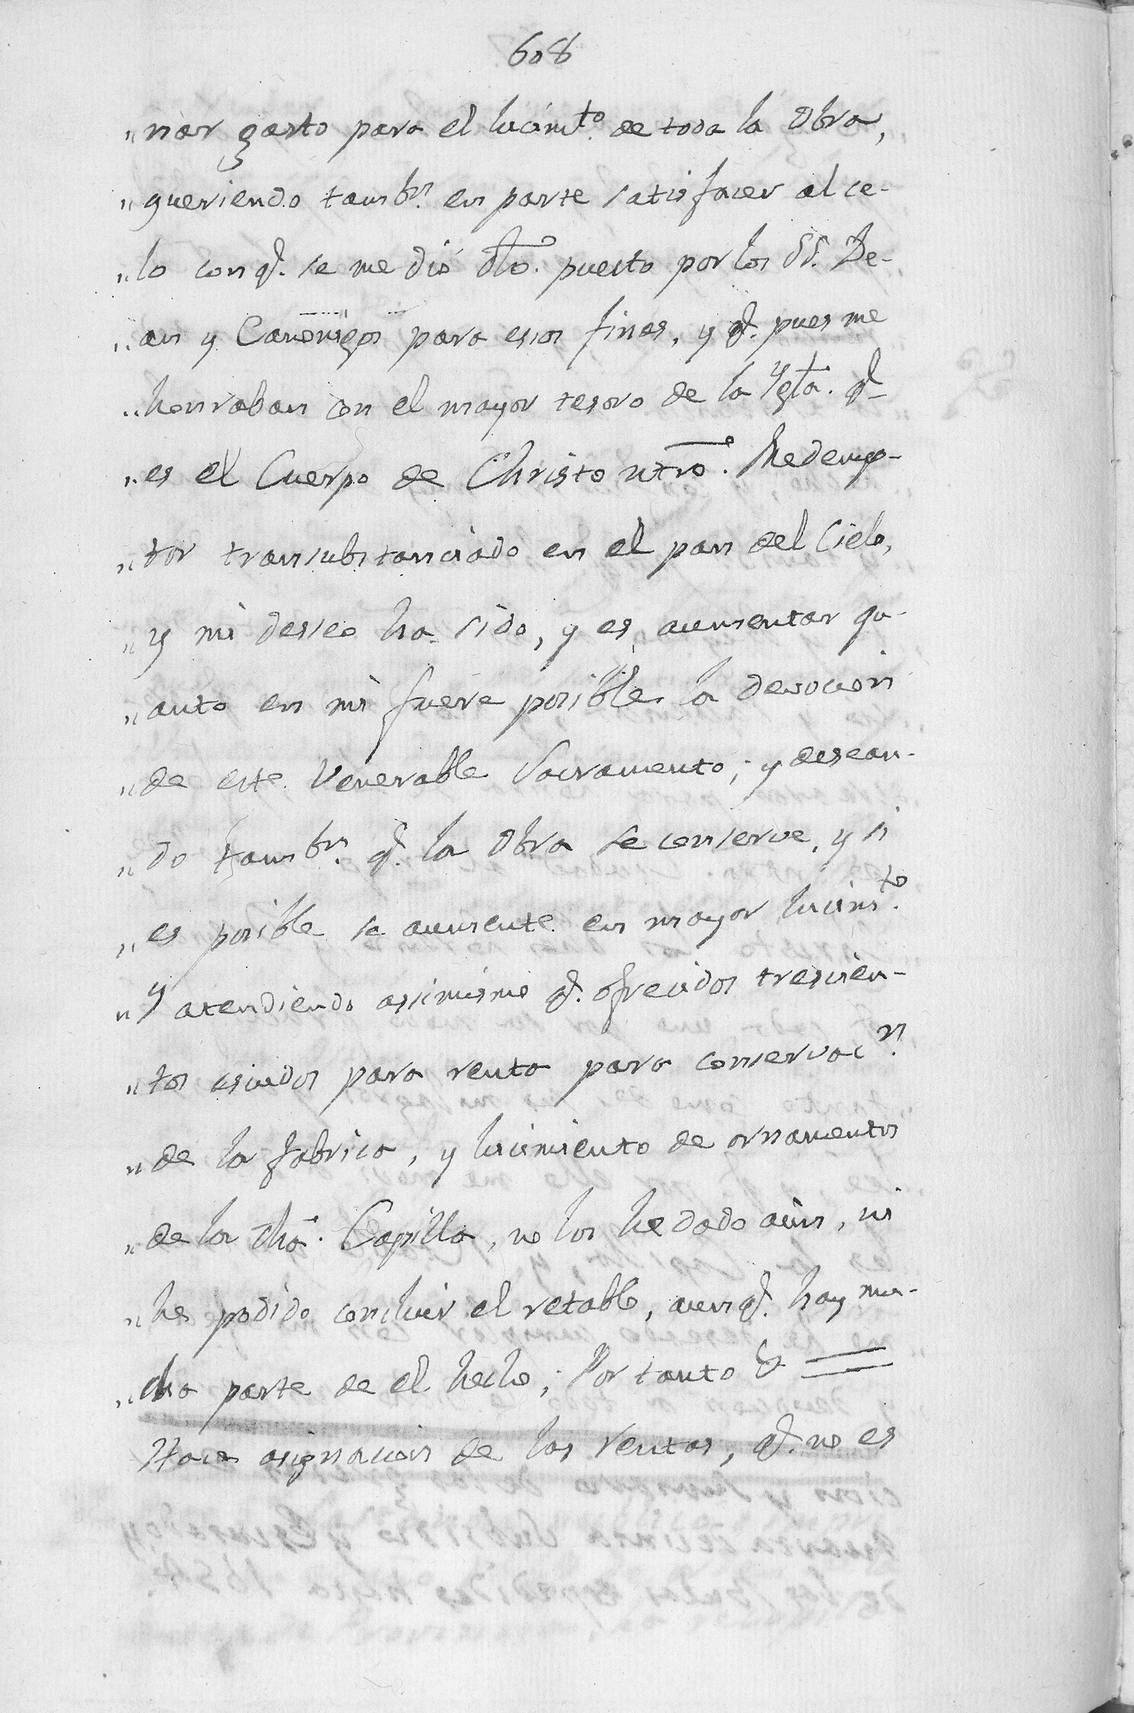 608
"nar gasto para el lucim.to de toda la Obra,
"queriendo tamb.n en parte satisfacer al ce-
"lo con q.e se me dió dho. puesto por los SS. De-
"an y Canonigos para esos fines, y q.e pues me
"honraban con el mayor tesoro de la Ygla. q.e
"es el Cuerpo de Christo ntro. Redemp-
"tor transubstanciado en el pan del Cielo,
"y mi deseo ha sido, y es, aumentar qu-
"anto en mi fuere posible la devocion
"de este Venerable Sacramento; y desean-
"do tamb.n q.e la Obra se conserve, y si
"es posible se aumente en mayor lucim.to
"Y atendiendo assimismo q.e ofrecidos trescien-
"tos escudos para renta para conservac.n
"de la fabrica, y lucimiento de ornamentos
"de la dha. Capilla, no los he dado aún, ni
"he podido concluir el retablo, aunq.e hay mu-
"cha parte de el hecho; Por tanto &
Hace asignacion de las rentas, q.e no es